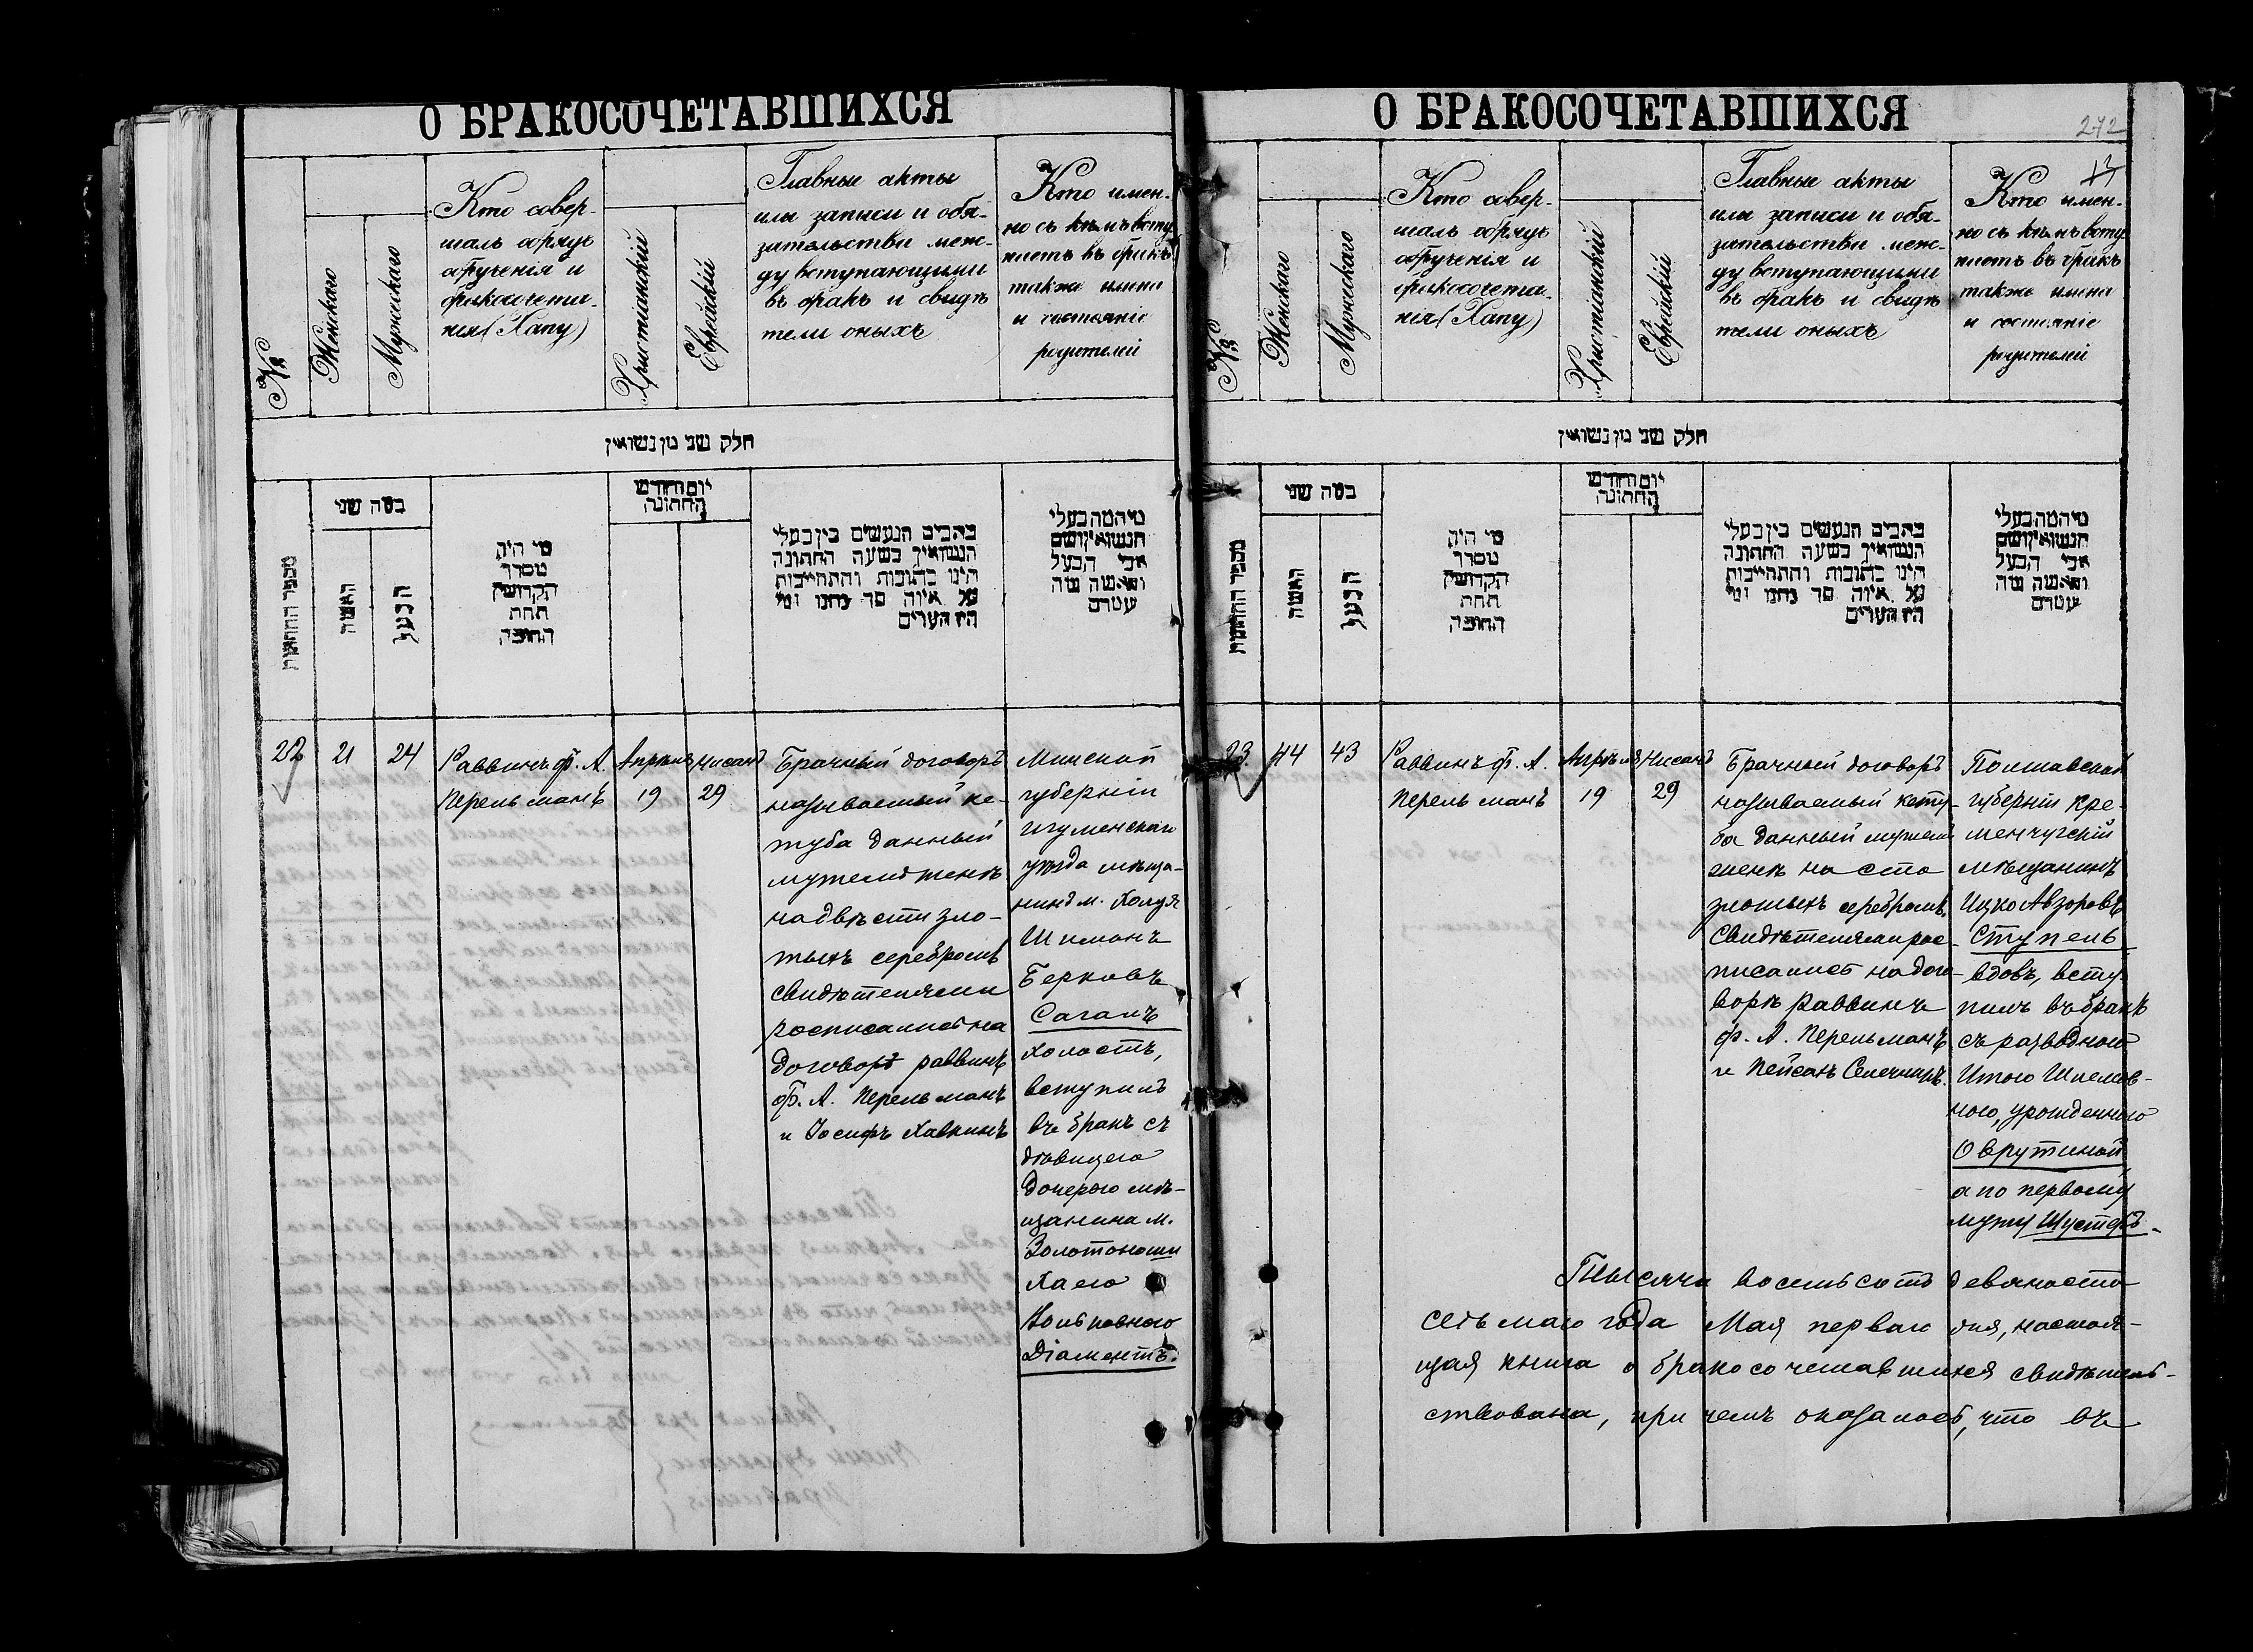 О БРАКОСОЧЕТАВШИХСЯ
№
Женскаго
Мужескаго
Кто совер-
шалъ обрядъ
обрученія и
бракосочета-
нія (Хапу)
Христіанскій
Еврейскій
Главные акты
или записи и обя-
зательства меж-
ду вступающими
въ бракъ и свидѣ
тели оныхъ
Кто имен-
но съ кѣмъ всту
паетъ въ бракъ
также имена
и состояніе
родителей
חלק שני מן נשואין
מספר החתונות
במה שני
האשה
הבעל
מי היה
מסדר
הקדושין
תחת
החופה
יום וחודש
החתונה
כתבים הנעשים בין בעלי
הנשואין בשעה החתונה
היינו כתובות והתחייבות
על איזה סך נתנו ומי
היו העדים
מי המה בעלי
הנשואין ושם
אבי הבעל
והאשה מה
מעמדם
22
21
24
Раввинъ ф. А.
Перельманъ
Апрѣля
19
Нисанъ
29
Брачный договоръ
называемый ке-
туба данный
мужемъ женѣ
на двѣсти зло-
тыхъ серебромъ
Свидѣтелями
росписались на
договорѣ раввинъ
Ф. А. Перельманъ
и Іосифъ Хавкинъ
Минской
губерніи
Игуменскаго
уѣзда мѣща-
нинъ м. Холуя
Шимонъ
Берковъ
Саганъ
холостъ,
вступилъ
въ бракъ съ
дѣвицею
дочерью мѣ-
щанина м.
Золотоноши
Хаею
Диаментъ.
О БРАКОСОЧЕТАВШИХСЯ
272
№
Женскаго
Мужескаго
Кто совер-
шалъ обрядъ
обрученія и
бракосочета-
нія (Хапу)
Христіанскій
Еврейскій
Главные акты
или записи и обя-
зательства меж-
ду вступающими
въ бракъ и свидѣ
тели оныхъ
Кто имен-
но съ кѣмъ всту
паетъ въ бракъ
также имена
и состояніе
родителей
חלק שני מן נשואין
מספר החתונות
במה שני
האשה
הבעל
מי היה
מסדר
הקדושין
תחת
החופה
יום וחודש
החתונה
כתבים הנעשים בין בעלי
הנשואין בשעה החתונה
היינו כתובות והתחייבות
על איזה סך נתנו ומי
היו העדים
מי המה בעלי
הנשואין ושם
אבי הבעל
והאשה מה
מעמדם
23
44
43
Раввинъ ф. А.
Перельманъ
Апрѣля
19
Нисанъ
29
Брачный договоръ
называемый кету-
ба данный мужемъ
женѣ на сто
злотыхъ серебромъ,
Свидѣтелями рос-
писались на дого-
ворѣ раввинъ
ф. А. Перельманъ
и Пейсахъ
Полтавской
губерніи Кре-
менчугскій
мѣщанинъ
Ицко Авзоровъ
Ступель
вдовъ, всту-
пилъ въ бракъ
съ разводной
Итою Шлемов-
ною, урожденною
Оврутиной
а по первому
мужу Шустеръ
Тысяча восемьсотъ девяносто
седьмаго года Мая перваго дня, настоя-
щая книга о бракосочетавшихся свидѣтель-
ствована, при чемъ оказалось, что въ